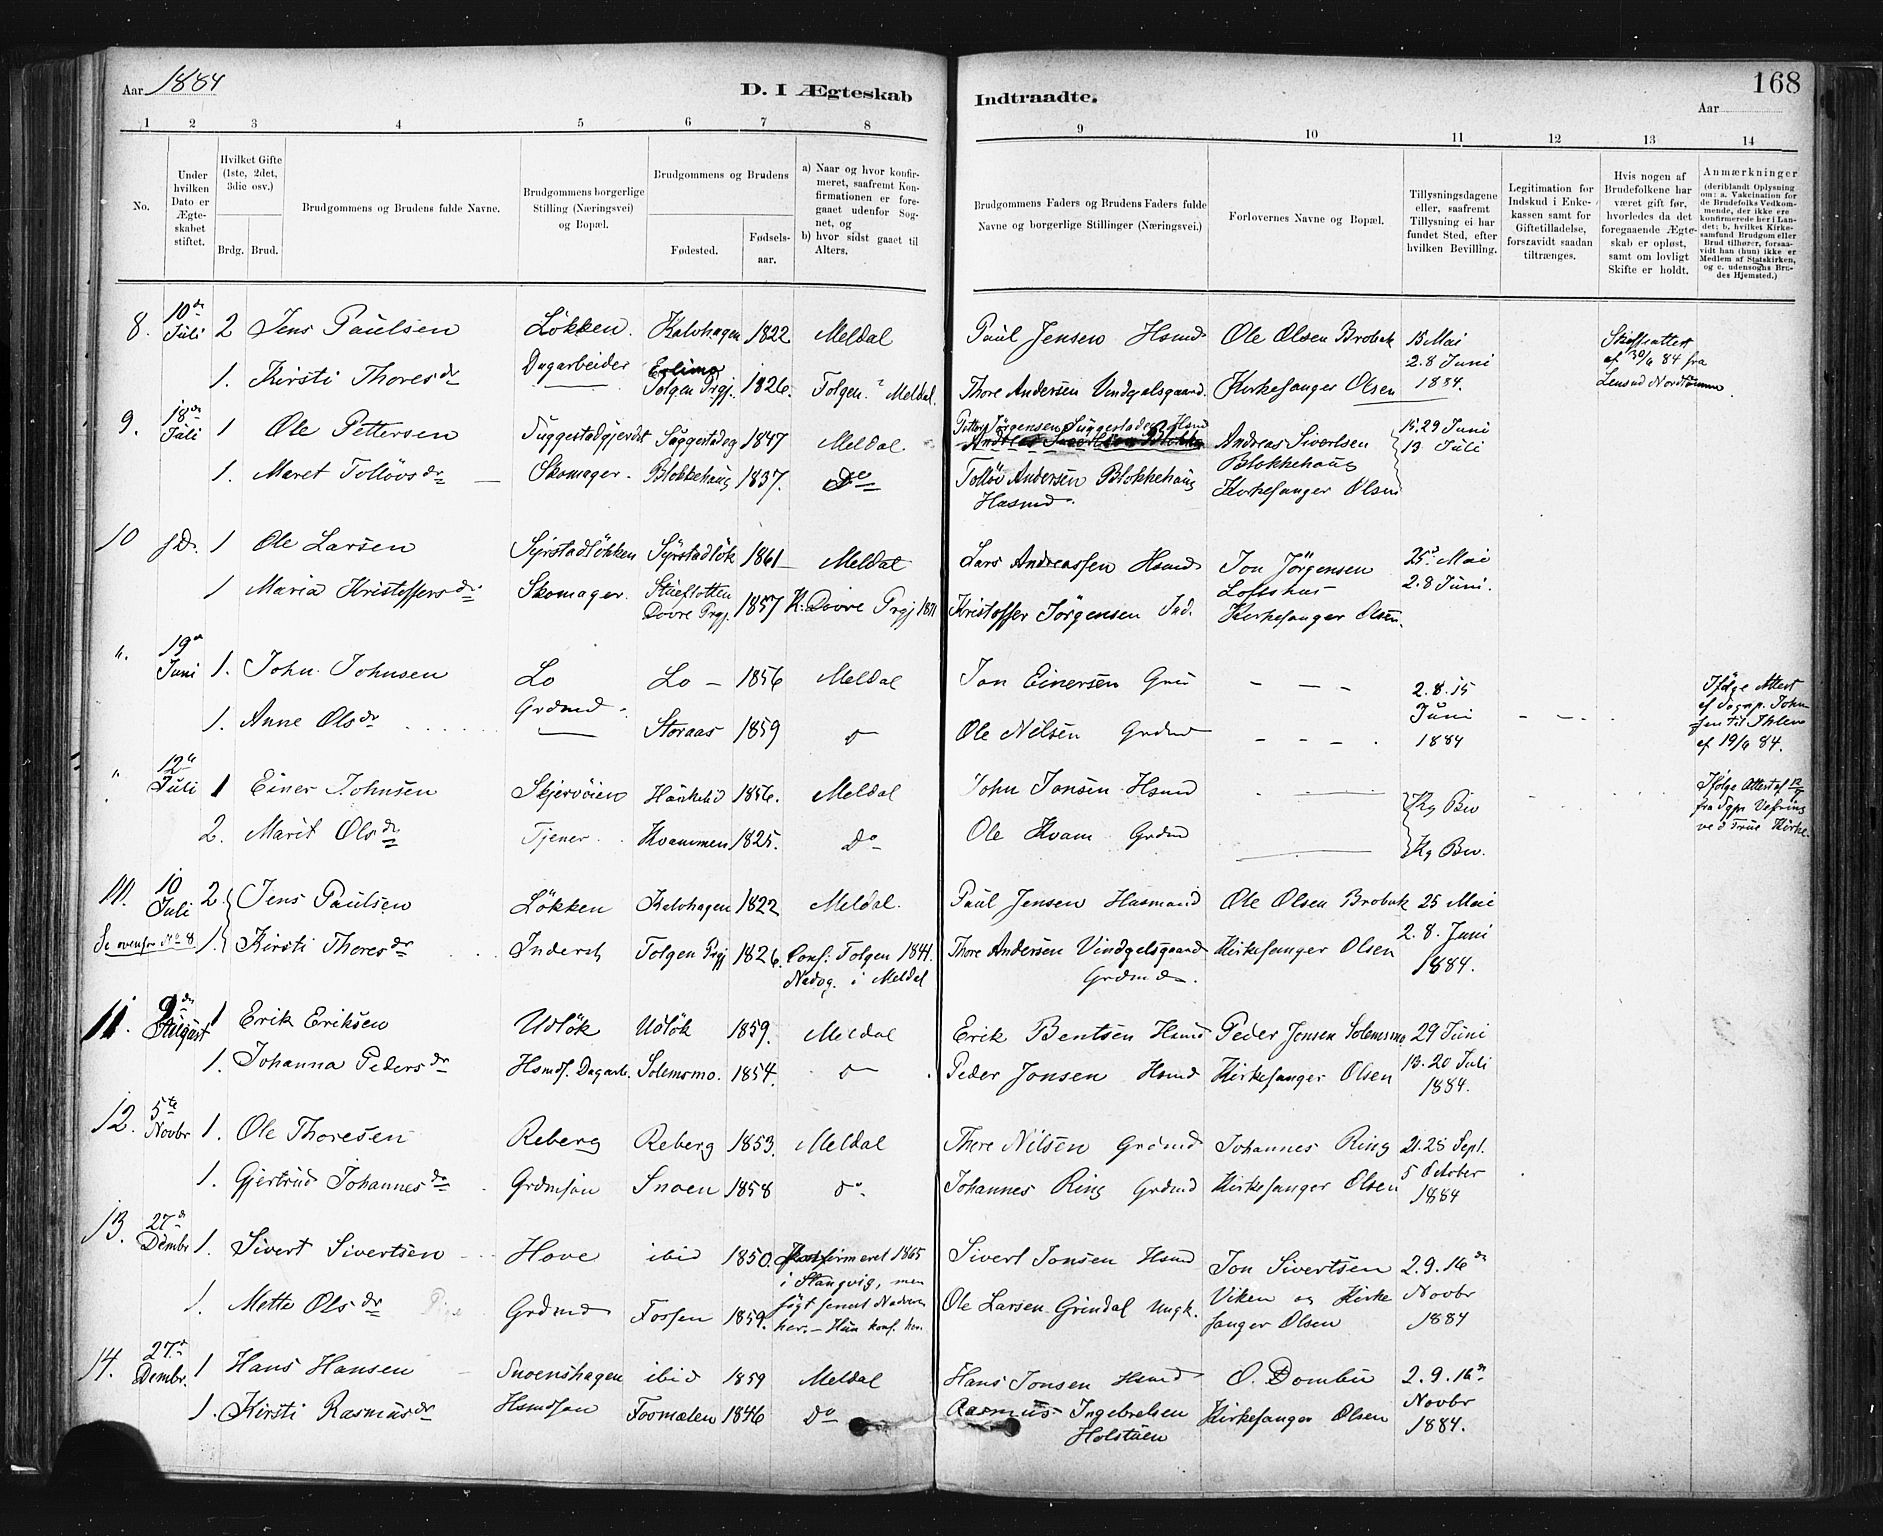 Aar 1884
D. I Ægteskab
Indtraadte.
168
Aar
1 2 3 4 5 6 7 8 9 10 11 12 13 14
No.
Under hvilken Dato er Ægteskabet stiftet.
Hvilket Gifte (1ste, 2det, 3die osv.)
Brdg. Brud.
Brudgommens og Brudens fulde Navne.
Brudgommens borgerlige Stilling (Næringsvei) og Bopæl.
Brudgommens og Brudens
Fødested.
Fødselsaar.
a) Naar og hvor konfirmeret, saafremt Konfirmationen er foregaaet udenfor Sognet, og
b) hvor sidst gaaet til Alters.
Brudgommens Faders og Brudens Faders fulde Navne og borgerlige Stillinger (Næringsvei.)
Forlovernes Navne og Bopæl.
Tillysningsdagene eller, saafremt Tillysning ei har fundet Sted, efter hvilken Bevilling.
Legitimation for Indskud i Enkekassen samt for Giftetilladelse, forsaavidt saadan tiltrænges.
Hvis nogen af Brudefolkene har været gift før, hvorledes da det foregaaende Ægteskab er opløst, samt om lovligt Skifte er holdt.
Anmærkninger
(deriblandt Oplysning om: a. Vakcination for de Brudefolks Vedkommende, der ikke ere konfirmerede her i Landet; b. hvilket Kirkesamfund Brudgom eller Brud tilhører, forsaavidt han (hun) ikke er Medlem af Statskirken, og c. udensogns Brudes Hjemsted.)
8. 10de Juli 2 Jens Paulsen Løkken. Kalvhagen 1822 Meldal Paul Jensen Hsmd Ole Olsen Brobak 15 Mai
1. Kirsti Thoresdr Dagarbeider Tolgen Prgj. 1826. Tolgen? Meldal. Thore Andersen Vindgalsgaard Kirkesanger Olsen 2. 8 Juni 1884. Skifteattest af 30/6 84 fra Lensmd Nordtømme
9. 18de Juli 1 Ole Pettersen Suggestadgjerdet Suggestadeg 1847 Meldal. Petter Jørgensen Suggestadeg Hsmd Andreas Sivertsen Blokkehaug 15. 29 Juni 13 Juli
1. Maret Tolløvsdr Skomager. Blokkehaug 1837. Do Tolløv Andersen Blokkehaug Husmd. Kirkesanger Olsen
10 s.D. 1 Ole Larsen Syrstadløkken Syrstadløk 1861 Meldal Lars Andreassen Hsmd Jon Jørgensen Loftshus 25d Mai
1 Maria Kristoffersdr Skomager. Stueflotten Dovre Prgj. 1857 K. Dovre Prgj 1871 Kristoffer Jørgensen Ind. Kirkesanger Olsen. 2. 8 Juni.
". 19de Juni 1. John Johnsen Lo Lo – 1856 Meldal Jon Einersen Grd – – – 2. 8. 15
1. Anne Olsdr Grdmd. Storaas 1859 do Ole Nilsen Grdmd – – – . Juni 1884 Ifølge Attest af Sogp. Johnsen til Ihlen af 19/6 84.
" 12te Juli 1 Einer Johnsen Skjervøien Haukelid 1856. Meldal John Jonsen Hsmd Kg Bev
2. Marit Olsdr Tjener. Kvammen 1825. Do Ole Kvam Grdmd Kg Bev. Ifølge Attest af 12/7 fra Sgpr. Vefring ved Frue Kirke.
10. 10 Juli 2. Jens Paulsen Løkken Kalvhagen 1822 Meldal. Paul Jensen Husmand Ole Olsen Brobak 25 Mai
Se ovenfor No 8 1. Kirsti Thoresdr Inderst Tolgen Prgj 1826. Conf. Tolgen 1841. Nadvg. i Meldal Thore Andersen Vindgelsgaard Grdmd. Kirkesanger Olsen 2. 8. Juni 1884.
11. 9de August 1 Erik Eriksen Udløk Udløk 1859. Meldal Erik Bentsen Hsmd Peder Jonsen Solemsmo 29 Juni
1. Johanna Pedersdr Hsmds. Dagarb. Solemsmo. 1854. do Peder Jonsen Hsmd Kirkesanger Olsen 13. 20 Juli 1884.
12. 5te Novbr 1. Ole Thoresen Reberg Reberg 1853. Meldal Thore Nilsen Grdmd Johannes Ring 21. 28 Sept.
1. Gjertrud Johannesdr Grdmsøn Snoen 1858 do. Johannes Ring Grdmd Kirkesanger Olsen 5 October 1884
13. 27de Dcmbr 1. Sivert Sivertsen Hove ibid 1850. Konfirmeret 1865 i Stangvig, men søgt senest Nadveren her. – Hun konf. her. Sivert Jonsen Hsmd Jon Sivertsen Viken og Kirkesanger Olsen 2. 9. 16de Novbr 1884
1. Mette Olsdr Grdmd Fossen 1859. Ole Larsen Grindal Ungk.
14. 27de Dcmbr. 1 Hans Hansen Snoenshagen ibid 1859 Meldal Hans Jonsen Hsmd O. Dombu 2. 9. 16de
1. Kirsti Rasmusdr Hsmdsøn Fosmælen 1846 Do Rasmus Ingebrelsen Holstuen Kirkesanger Olsen Novbr 1884.